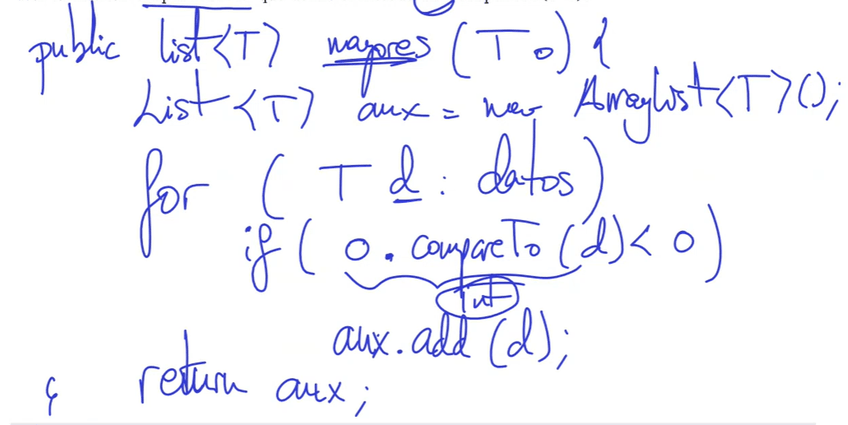 public List<T> mayores (T o) {
List<T> aux = new ArrayList<T>();
for ( T d : datos)
if ( o . compareTo (d) < 0 )
int
aux.add (d);
} return aux;